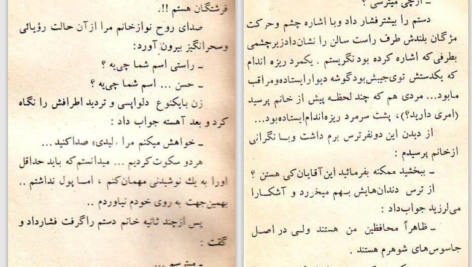 ـ ازچی میترسی ؟
دستم را بیشترفشار داد وبا اشاره چشم وحرکت
مژگان بلندش طرف راست سالن را نشان‌دادزیرچشمی
بطرفی‌که اشاره کرده بود نگریستم . یکمرد ریزه اندام
که یکدستش توی‌جیبش‌بودگوشه دیوارایستاده‌ومراقب
مابود... مردی هم که چند لحظه پیش از خانم پرسید
(امری دارید؟)، پشت سرمرد ریزه‌اندام‌ایستاده‌بود...
از دیدن این دونفرترس برم داشت وبا نگرانی
ازخانم پرسیدم :
ـ ببخشید ممکنه بفرمائید این‌آقایان‌کی هستن ؟
از ترس دندان‌هایش بهم میخررد و آشکارا
می‌لرزید جواب‌داد :
ـ ظاهراً محافظین من هستند ولی در اصل
جاسوس‌های شوهرم هستند .
فرشتگان هستم !!.
صدای روح نوازخانم مرا ازآن حالت رؤیائی
وسحرانگیز بیرون آورد:
ـ راستی اسم شما چی‌یه ؟
ـ حسن ... اسم شما چی‌یه ؟
زن بایکنوع دلواپسی و تردید اطرافش را نگاه
کرد و بعد آهسته جواب داد :
ـ خواهش میکنم مرا «لیدی» صداکنید...
هردو سکوت‌کردیم ... میدانستم‌که باید حداقل
اورا به یك نوشیدنی مهمان‌کنم ، اما پول نداشتم ..
بهمین‌جهت به روی خودم نیاوردم ..
پس ازچند ثانیه خانم دستم راگرفت فشارداد و
گفت :